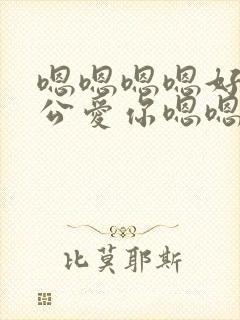 嗯嗯嗯嗯好
公爱你嗯嗯
比莫耶斯